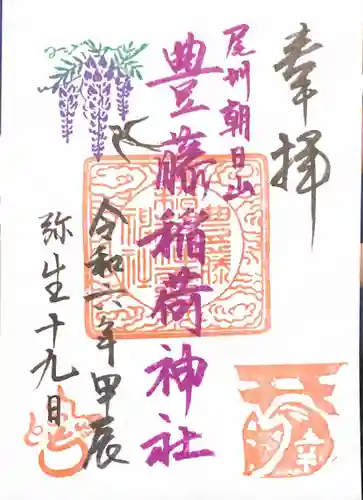 奉拝
尾州朝日山
豊藤稲荷神社
令和六年甲辰
弥生十九日